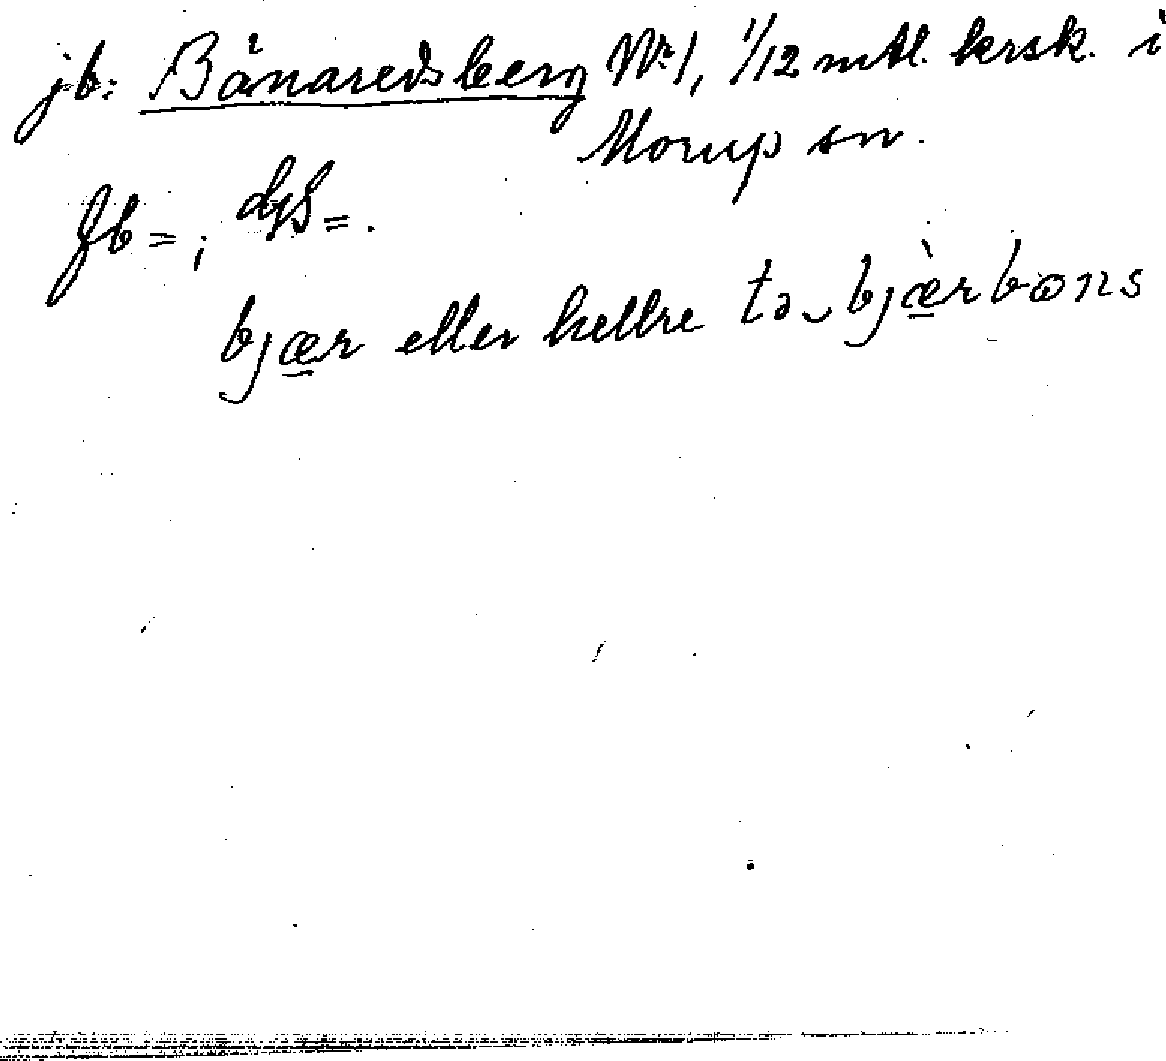 jb: Bånaredsberg No 1, 1/12 mtl. krsk. i
Morup sn.
fb = ; dgS = .
bjær eller hellre tə bjæ̀rbøns